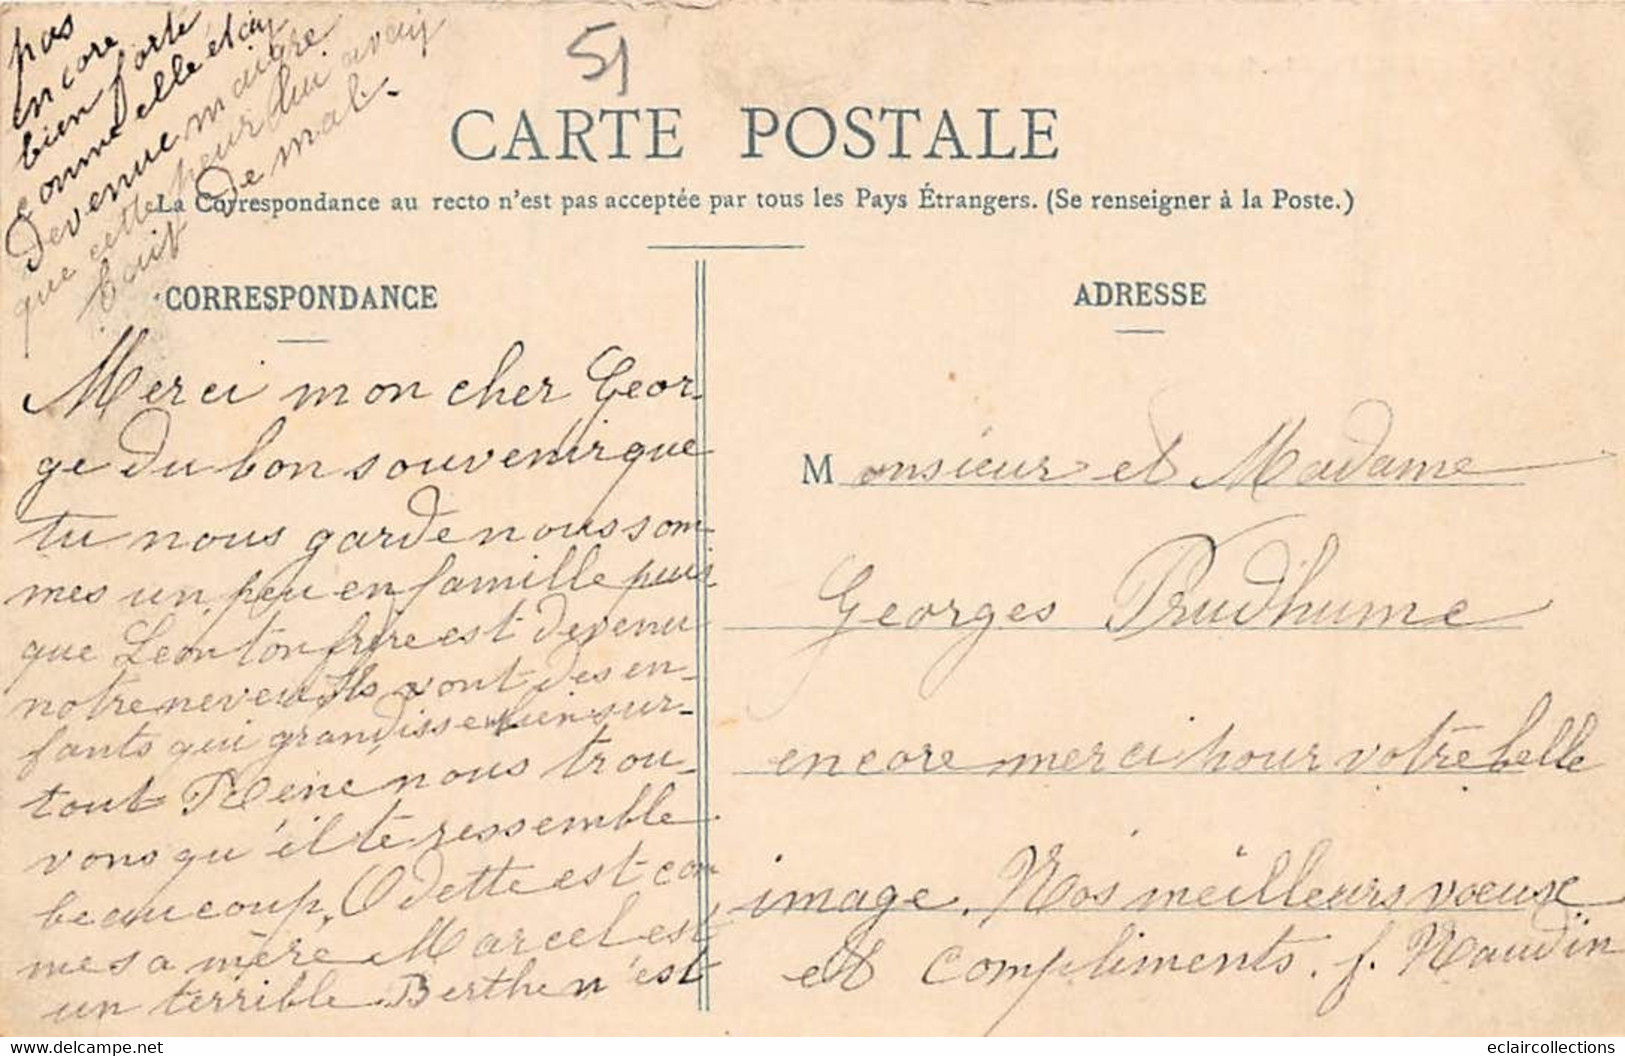 pas
encore
bien forte
comme elle etait
devenue maigre
que cette peur lui avait
fait de mal.
51
CARTE POSTALE
La Correspondance au recto n'est pas acceptée par tous les Pays Étrangers. (Se renseigner à la Poste.)
CORRESPONDANCE
Merci mon cher Geor-
ge du bon souvenir que
tu nous garde nous som-
mes un peu en famille puis
que Leon ton frère est devenu
notre neveu Ils vont des en-
fants qui grandisse bien sur-
tout Réné nous trou-
vons qu'il te ressemble
beaucoup, Odette est com
me sa mère Marcel est
un terrible. Berthe n'est
ADRESSE
Monsieur et Madame
Georges Prudhume
encore merci pour votre belle
image. Nos meilleurs voeux
et compliments. f. Naudin
eclaircollections
www.delcampe.net